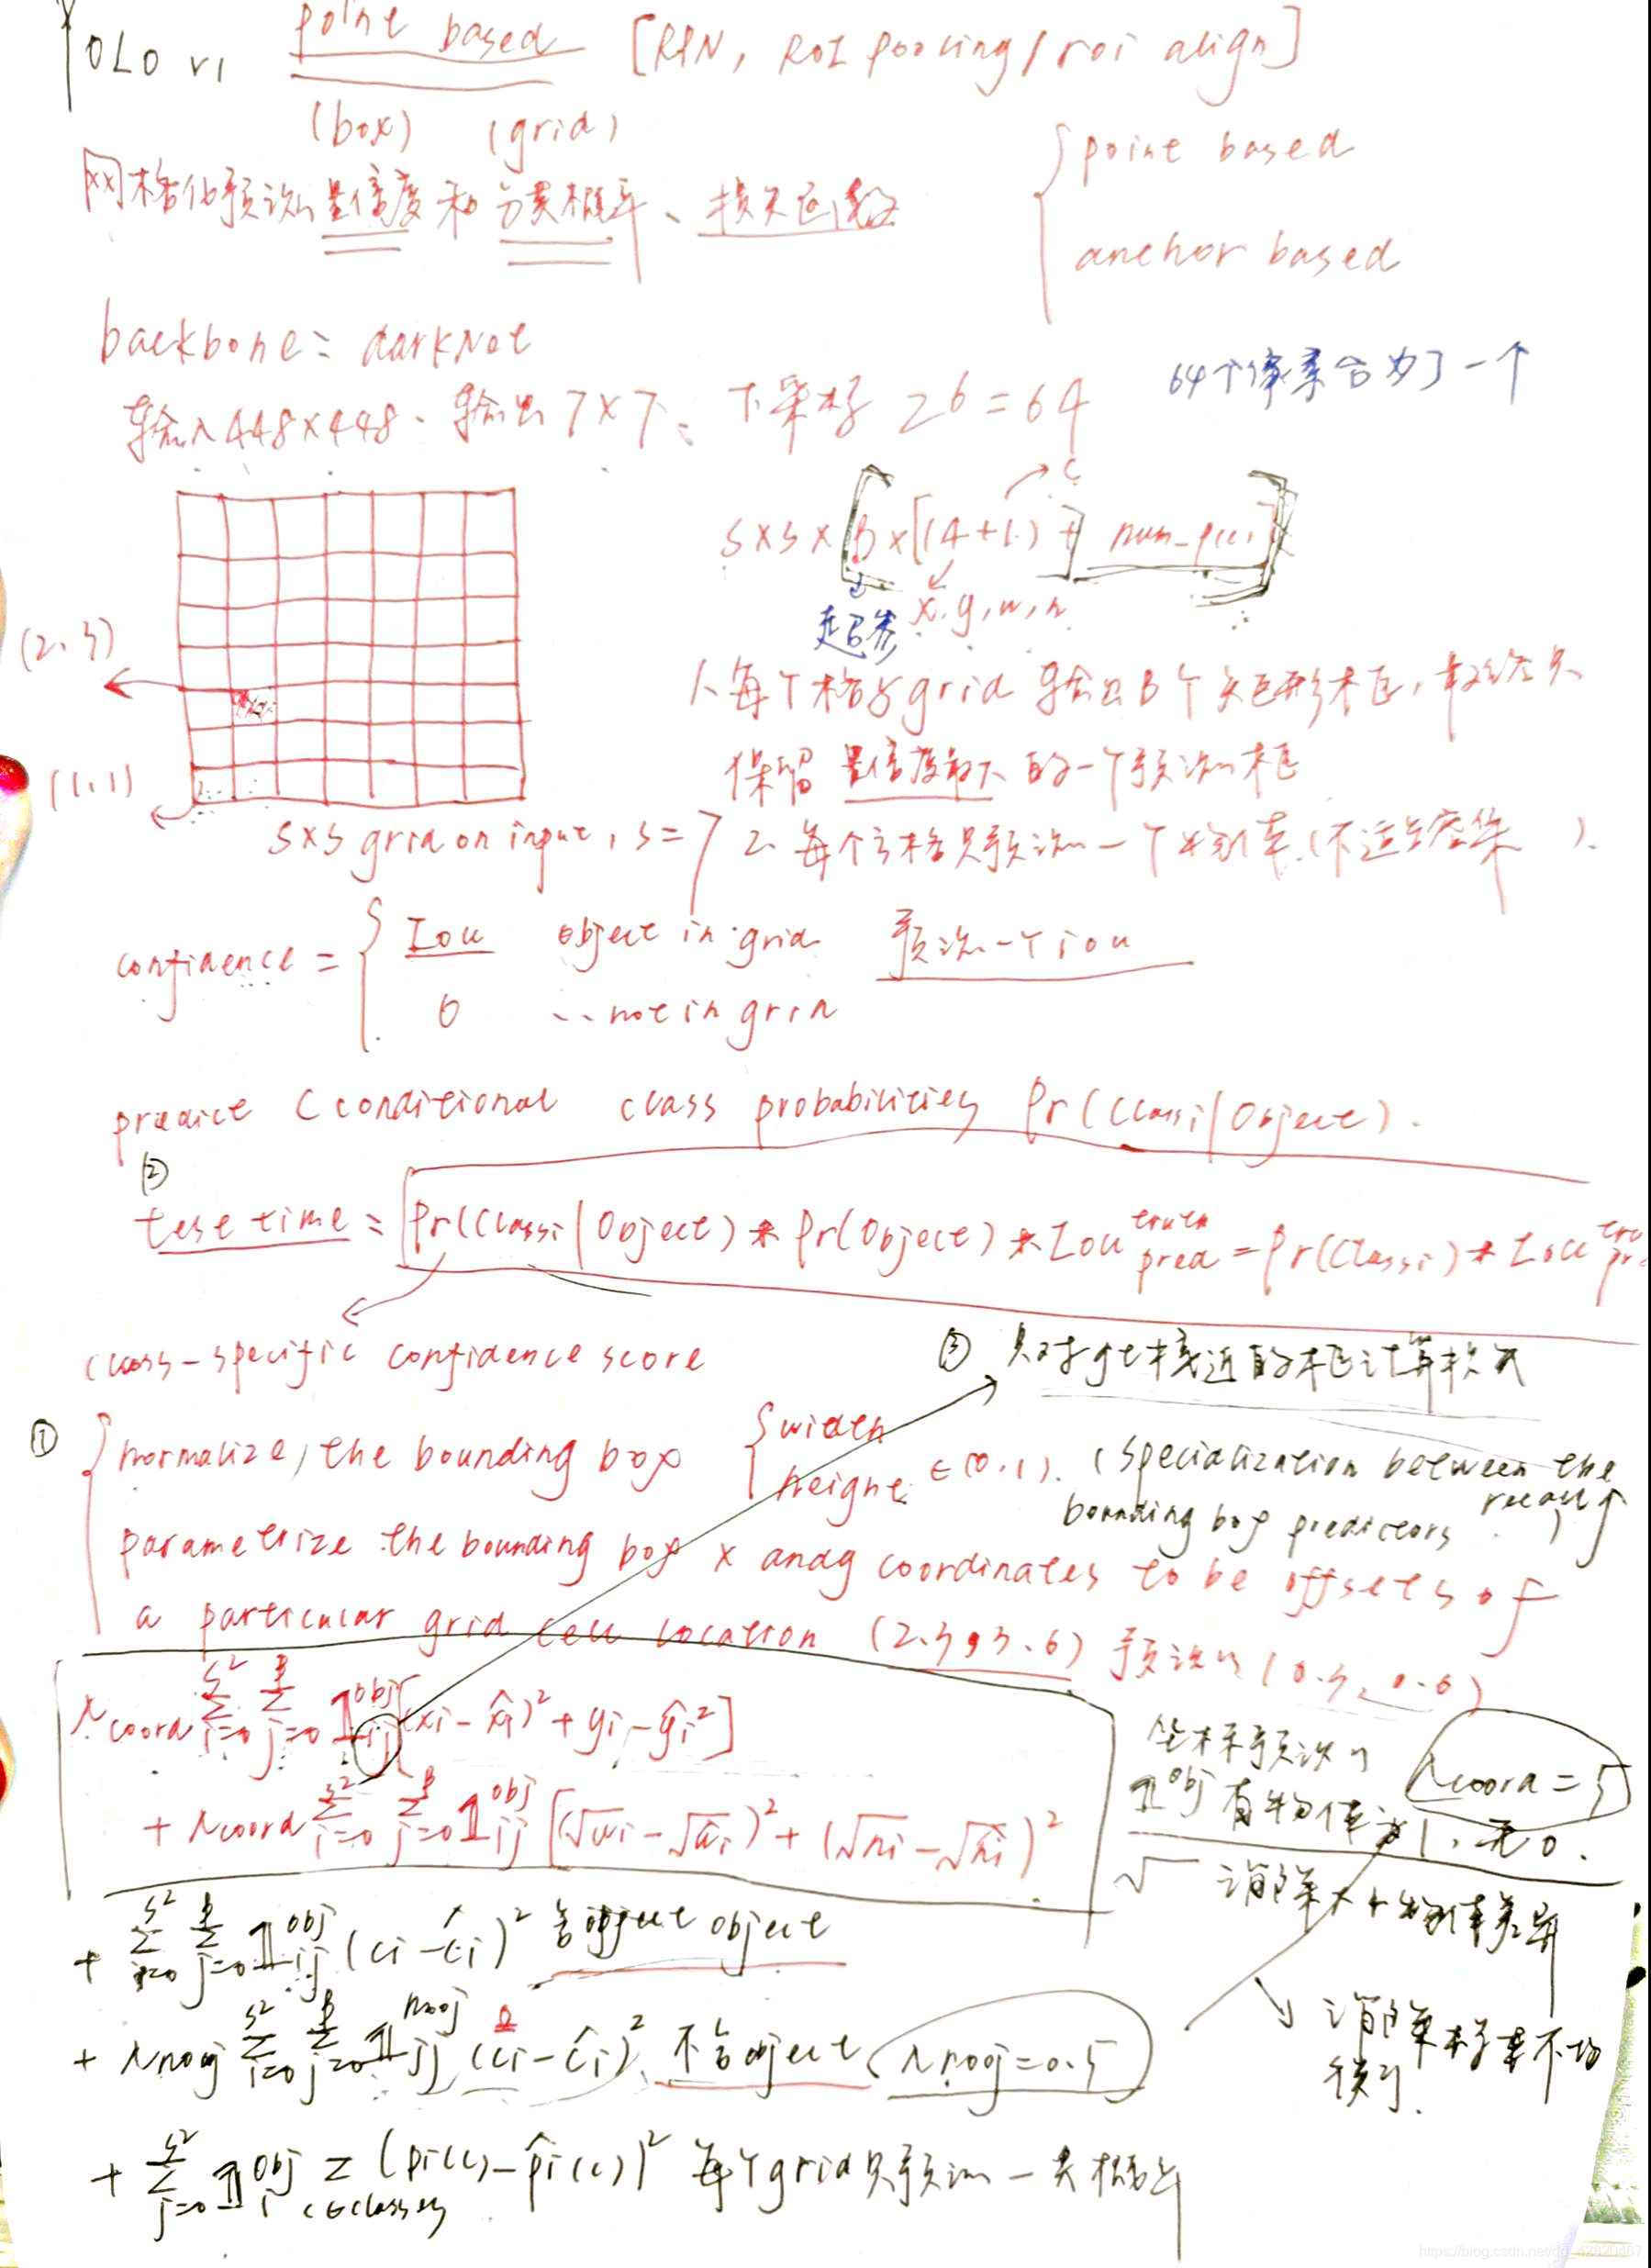 YOLO v1 point based [RPN, ROI pooling/roi align]
(box) (grid)
网格化预测 置信度 和 分类概率、损失函数
{ point based
anchor based
backbone: darkNet
输入448×448. 输出7×7、下采样 2^6=64
64个像素合为了一个
S×S×[B×[(4+1)+] num_
c
超参 x,y,w,h
(2.3)
(1.1)
S×S grid on input, S=7
1. 每个格子grid 输出B个矩形框,最终只
保留 置信度最大的一个预测框
2. 每个方格只预测一个物体(不适合密集).
confidence = { Iou object in grid 预测一个iou
0 ...not in grid
predict C conditional class probabilities Pr(Classi|Object).
②
test time = Pr(Classi|Object) * Pr(Object) * Iou^truth_pred = Pr(Classi) * Iou
class-specific confidence score
③ 只对gt接近的框计算损失
① { normalize, the bounding box { width height ∈(0,1).
(specialization between the bounding box predictors recall↑)
parametrize the bounding box x and y coordinates to be offsets of
a particular grid cell location (2.3,3.6) 预测(0.3, 0.6)
λcoord Σ_{i=0}^{S^2} Σ_{j=0}^{B} 𝟙_{ij}^{obj} [(xi-x̂i)^2+yi-ŷi^2]
+ λcoord Σ_{i=0}^{S^2} Σ_{j=0}^{B} 𝟙_{ij}^{obj} [(√wi-√ŵi)^2+(√hi-√ĥi)^2
坐标预测
𝟙^obj 有物体为1,无0.
λcoord=5
√ 消除大小物体差异
+ Σ_{i=0}^{S^2} Σ_{j=0}^{B} 𝟙_{ij}^{obj} (ci-ĉi)^2 含object object
+ λnooj Σ_{i=0}^{S^2} Σ_{j=0}^{B} 𝟙^{nooj} (ci-ĉi)^2 不含object (λnooj=0.5)
消除样本不均衡
+ Σ^{S^2} 𝟙_i^{obj} Σ_{c∈classes} (pi(c)-p̂i(c))^2 每个grid只预测一类概率